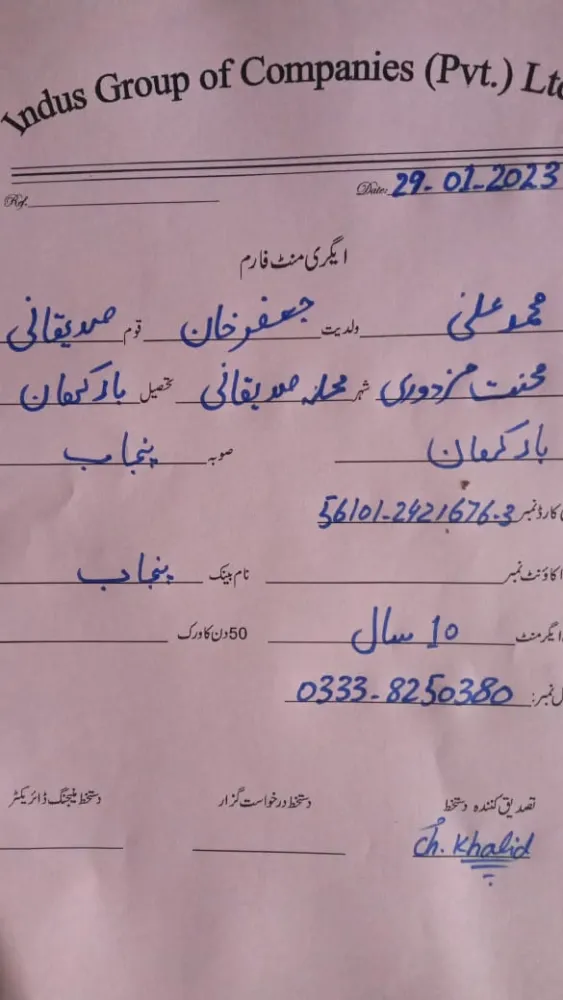 Indus Group of Companies (Pvt.) Ltd
Ref. Date: 29-01-2023
ایگری منٹ فارم
محمد علی ولدیت جعفر خان قوم صدیقانی
محنت مزدوری شہر محلہ صدیقانی تحصیل بارکھان
بارکھان صوبہ پنجاب
کارڈ نمبر 56101-2421676-3
اکاؤنٹ نمبر نام بینک پنجاب
ایگرمنٹ 10 سال 50 دن کا ورک
نمبر: 0333-8250380
تصدیق کنندہ دستخط دستخط درخواست گزار دستخط منیجنگ ڈائریکٹر
Ch. Khalid